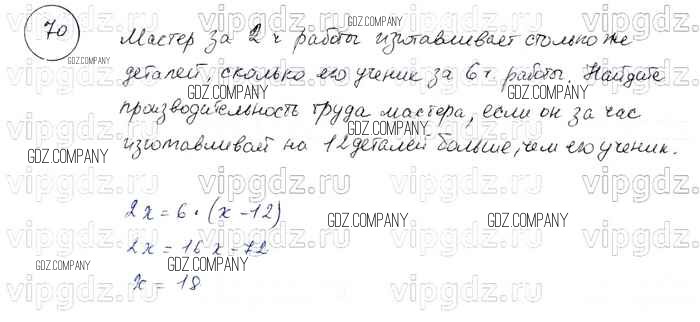 70
Мастер за 2 ч работы изготавливает столько же
деталей, сколько его ученик за 6 ч. работы. Найдите
производительность труда мастера, если он за час
изготавливает на 12 деталей больше, чем его ученик.
2x = 6 · (x - 12)
2x = 16x - 72
x = 18
GDZ.COMPANY
vipgdz.ru